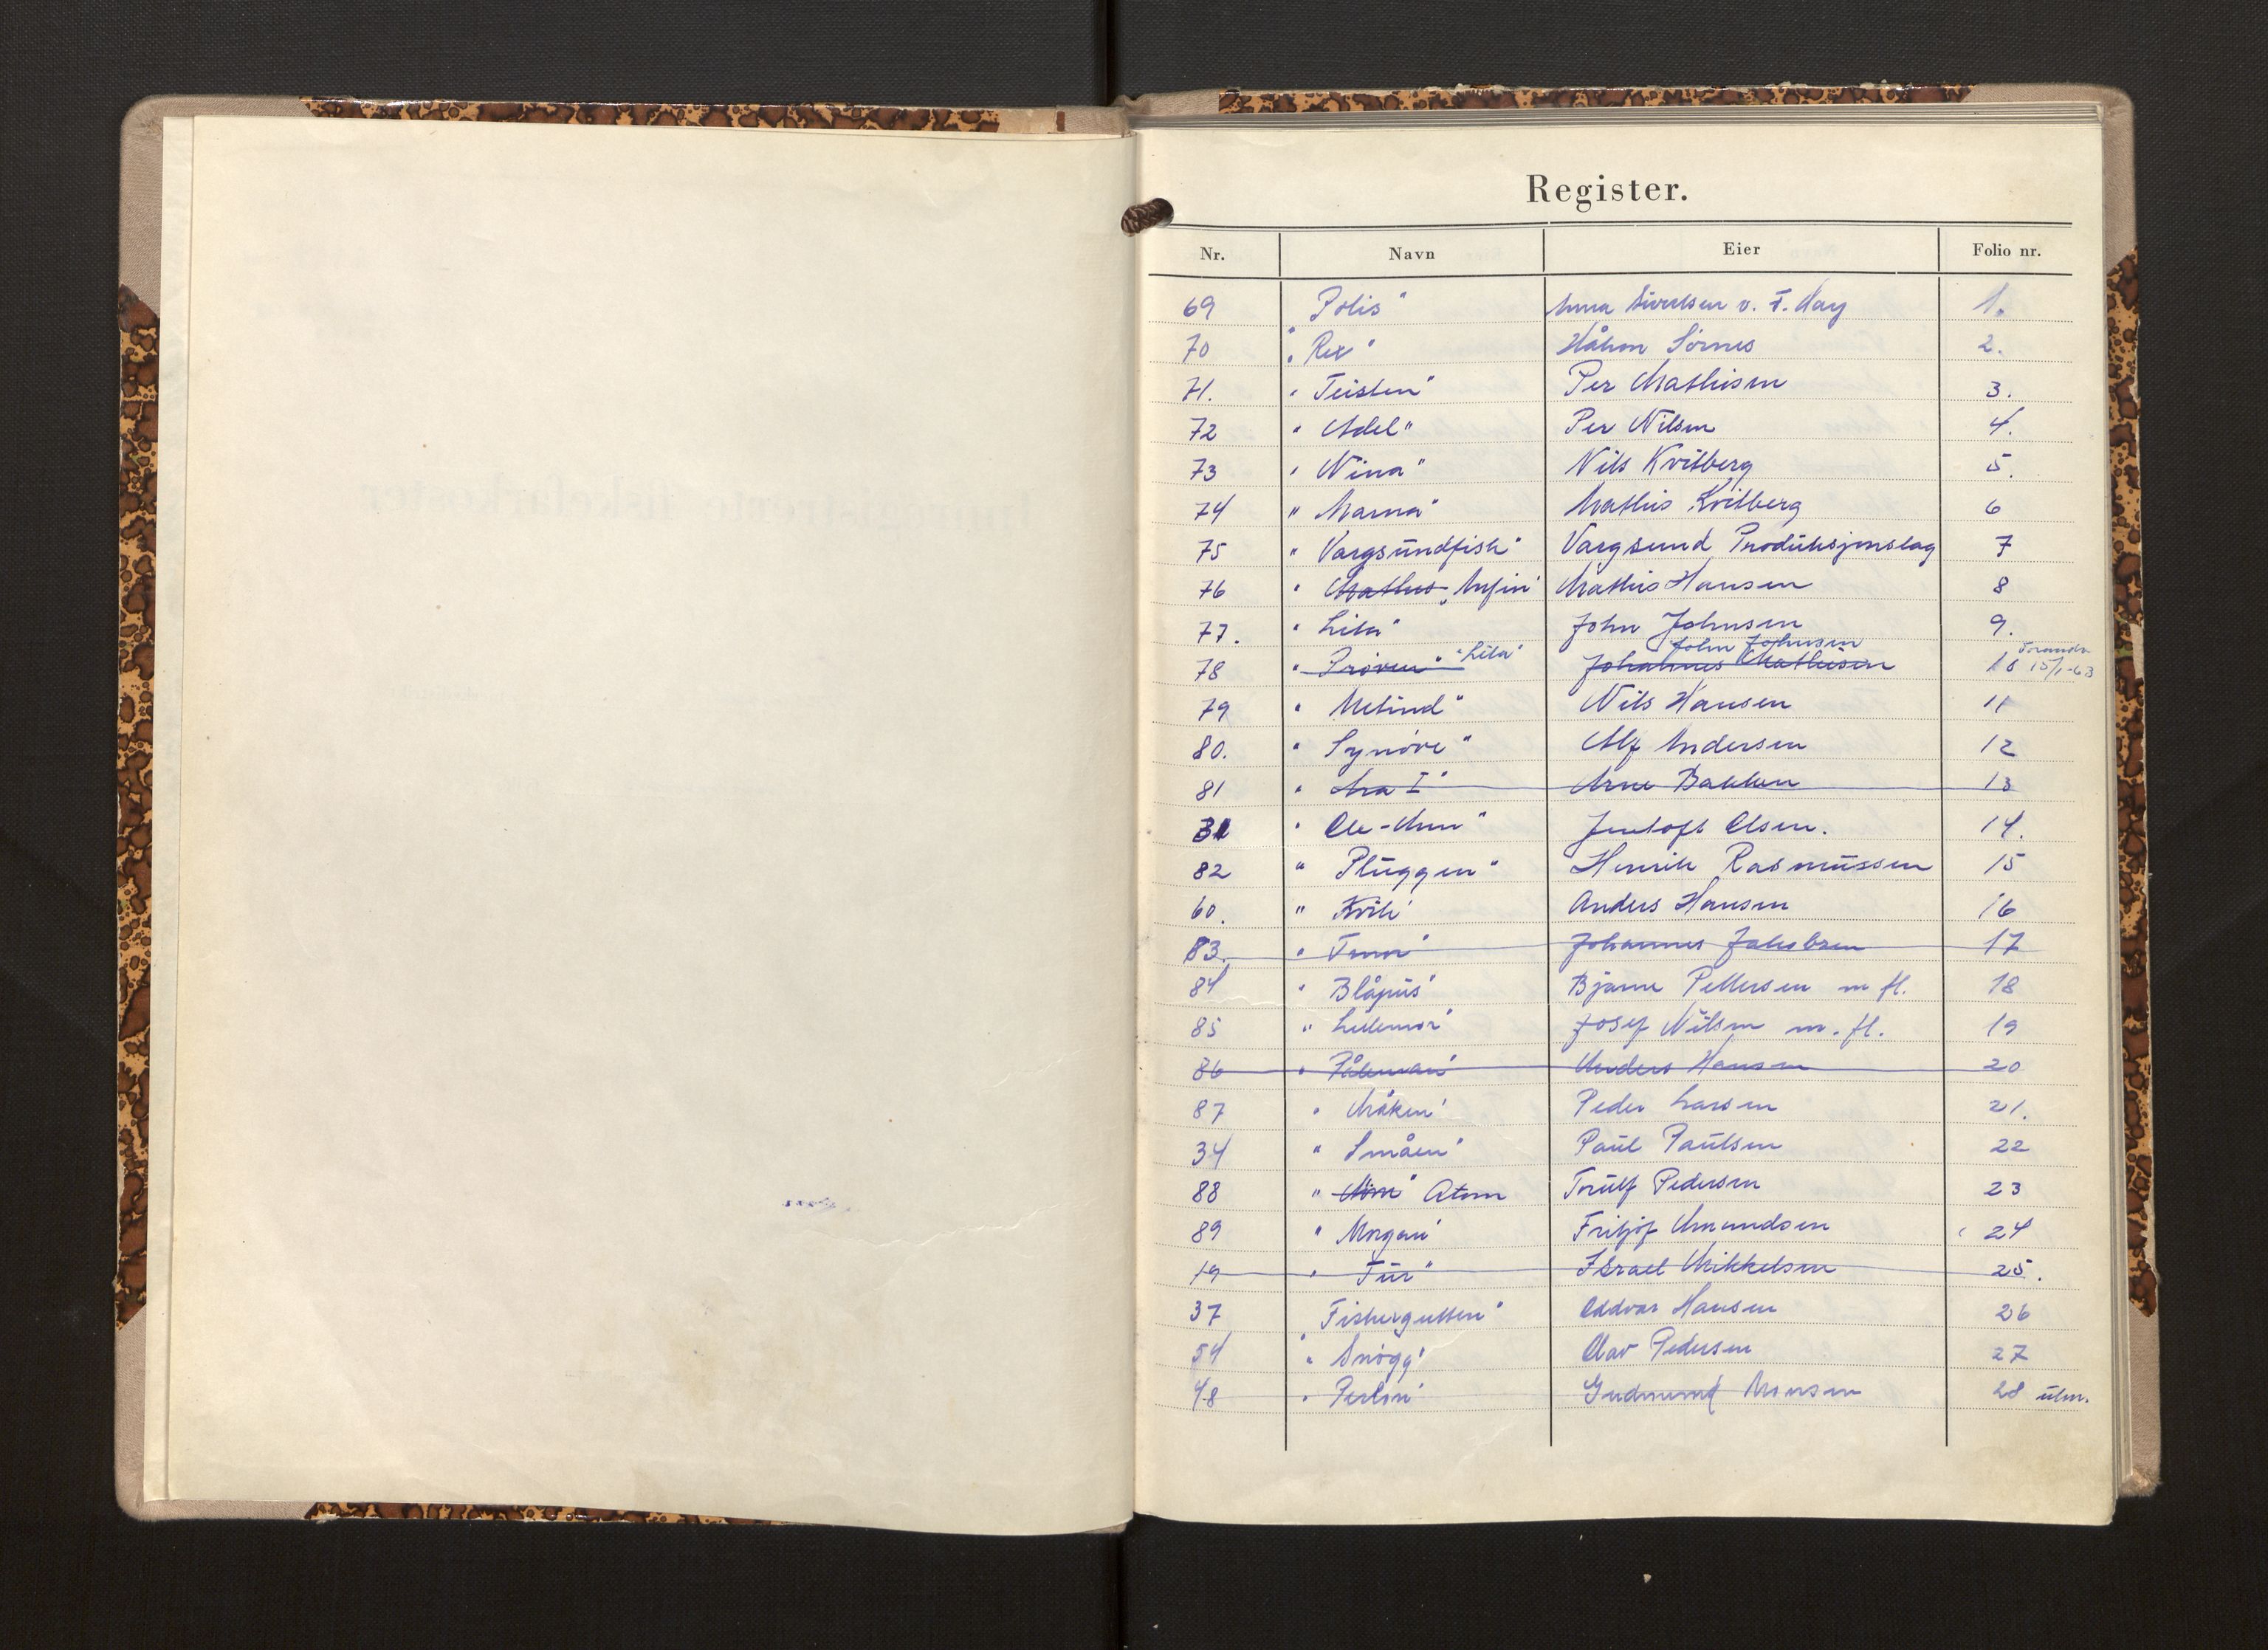 Register.
Nr. Navn Eier Folio nr.
69 "Polis" Anna Sivertsen v. F. Hay 1.
70 "Rex" Håkon Sørnes 2.
71. "Teisten" Per Mathisen 3.
72 "Adel" Per Nilsen 4.
73 "Nina" Nils Kvitberg 5.
74 "Marna" Mathis Kvitberg 6
75 "Vargsundfisk" Vargsund Produksjonslag 7
76 "Mathis "Anfin" Mathis Hansen 8
77. "Lita" John Johnsen 9.
John Johnsen
78 "Prøven" "Lita" Johannes Mathisen 10 15/1-63
79 "Metind" Nils Hansen 11
80. "Synøve" Alf Andersen 12
81 "Ara I" Arne Bakken 13
31 "Ole-Ann" Jentoft Olsen. 14.
82 "Pluggen" Henrik Rasmussen 15
60. "Kvik" Anders Hansen 16
83. Johannes Jakobsen 17
84 "Blåpus" Bjarne Pettersen m fl. 18
85 "Lillemor" Josef Nilsen m. fl. 19
86 "Pålman" Anders Hansen 20
87 "Måken" Peder Larsen 21.
34 "Småen" Paul Paulsen 22
88 Atom Torulf Pedersen 23
89 "Morgan" Fritjof Amundsen 24
19 "Tur" Israel Mikkelsen 25.
37 "Fiskergutten" Oddvar Hansen 26
54 "Snøgg" Olav Pedersen 27
48 "Perlon" Gudmund Monsen 28 utm.